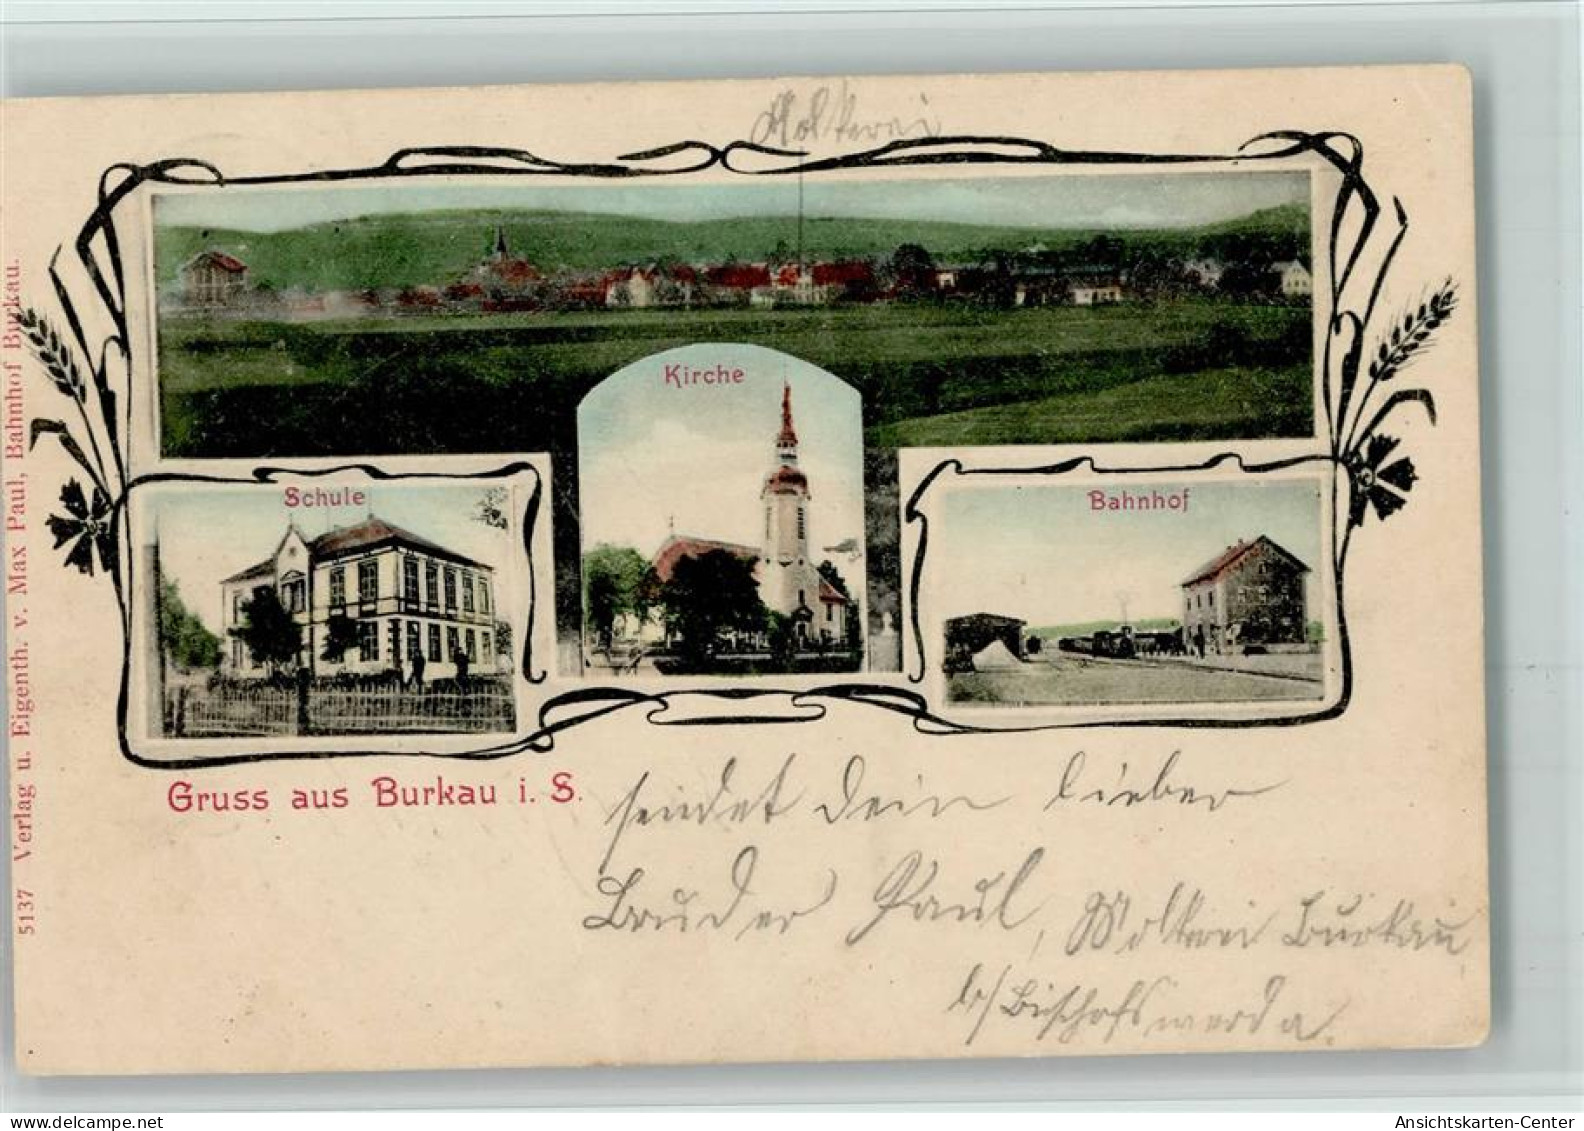 Molkerei
Kirche
Schule
Bahnhof
Gruss aus Burkau i. S.
sendet Dein lieber
Bruder Paul, Molkerei Burkau
b/Bischofswerda.
5137 Verlag u. Eigenth. v. Max Paul, Bahnhof Burkau.
delcampe.net
Ansichtskarten-Center